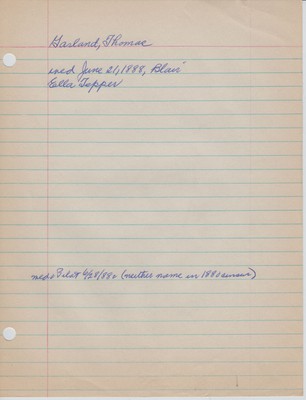 Garland, Thomas
md June 21, 1888, Blair
Ella Topper
Pilot 6/28/88 (neither name in 1880 census)